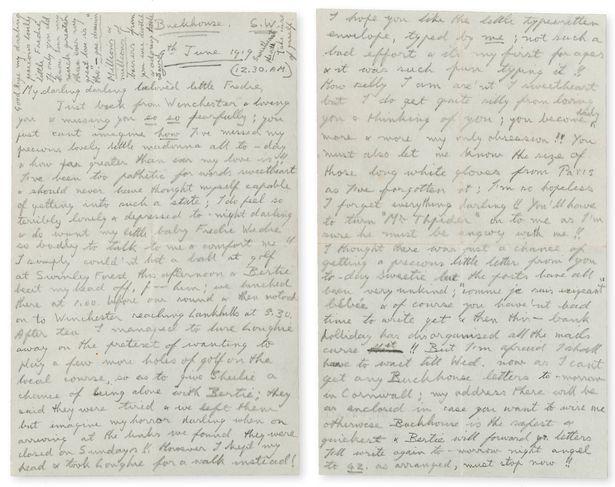 Buckhouse S.W.
th June 1919
(12.30.AM)
My darling darling beloved little Fredie,
Just back from Winchester & loving
you & missing you so so fearfully; you
just cant imagine how I've missed my
precious lovely little madonna all to-day
& how far greater than ever my love is!!
I've been too pathetic for words sweetheart
& should never have thought myself capable
of getting into such a state; I do feel so
terribly lonely & depressed to-night darling
& do want my little baby Fredie
so badly to talk to me & comfort me!!
I simply could'nt hit a ball at golf
at Swinley Forest this afternoon & Bertie
beat my head off, f— him; we lunched
there at 1.00 before our round & then motored
on to Winchester reaching Lankhills at 5.30.
After tea I managed to lure Loughie
away on the pretext of wanting to
play a few more holes of golf on the
local course, so as to give Sheilie a
chance of being alone with Bertie; they
said they were tired & we left them
but imagine my horror darling when on
arriving at the links we found they were
closed on Sundays!! However I kept my
head & took Loughie for a walk instead!
I hope you like the little typewritten
envelope, typed by me; not such a
bad effort & its my first for ages
& it was such fun typing it!!
How silly I am are'nt I sweetheart
but I do get quite silly from loving
you & thinking of you; you become daily
more & more my only obsession!! You
must also let me know the size of
those long white gloves from Paris
as I've forgotten it; I'm so hopeless
I forget everything darling!! You'll have
to turn "Mr Thpider" on to me as I'm
sure he must be angwy with me!!
I thought there was just a chance of
getting a precious little letter from you
to-day sweetie but the posts have all
been very unkind;
& of course you have'nt had
time to write yet & then this bank
holliday has disorganised all the mails
curse it!! But I'm afraid I shall
have to wait till Wed. now as I cant
get any Buckhouse letters to-morrow
in Cornwall; my address there will be
as enclosed in case you want to wire me
otherwise Buckhouse is the safest &
quickest & Bertie will forward yr letters
Will write again to-morrow night angel
to 42. as arranged, must stop now!!